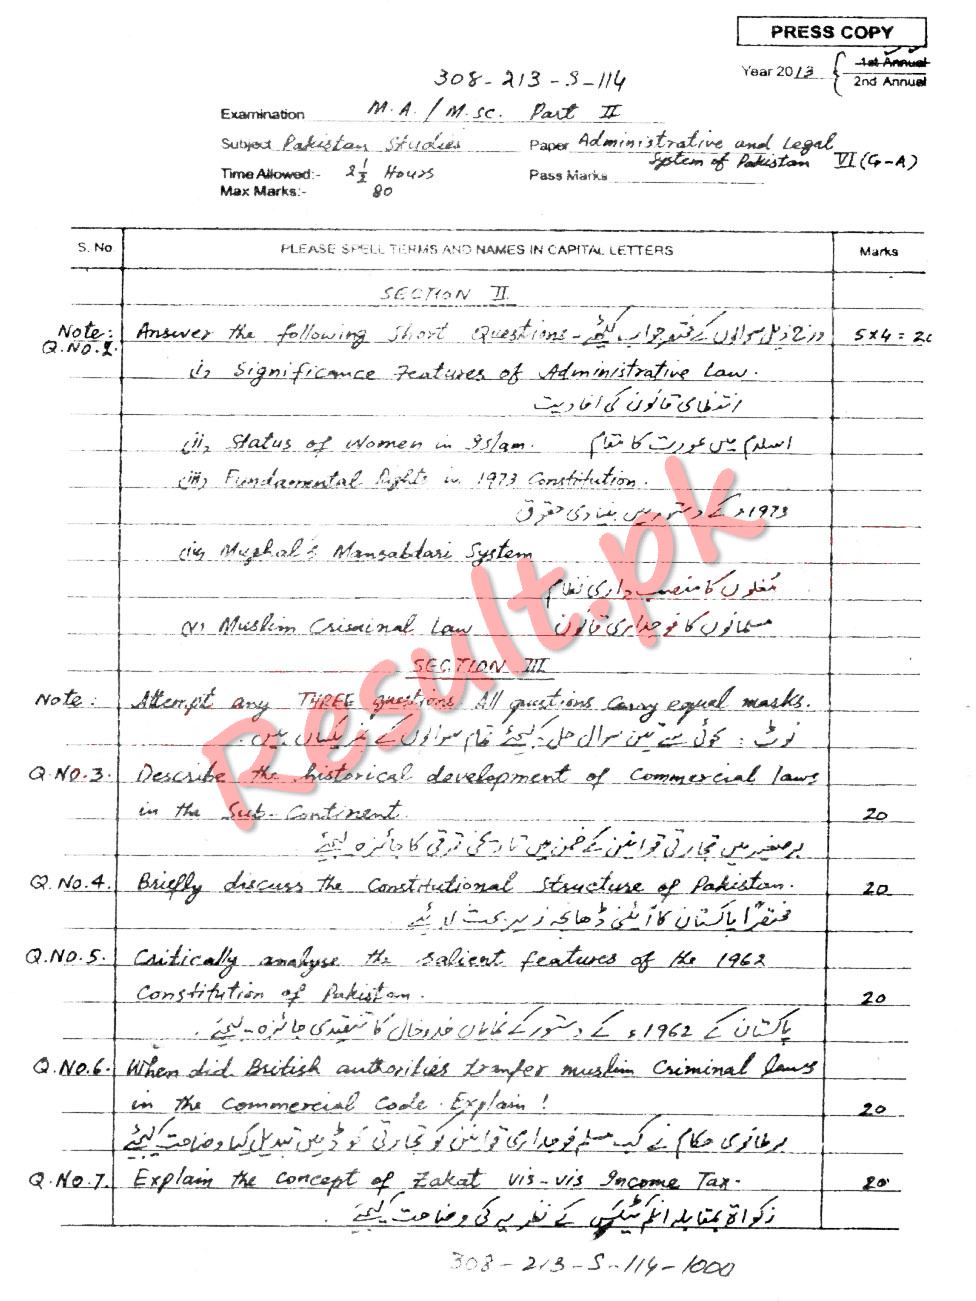 PRESS COPY
Year 2013 1st Annual
2nd Annual
308-213-S-114
Examination M.A./M.Sc. Part II
Subject Pakistan Studies Paper Administrative and Legal
System of Pakistan VI (G-A)
Time Allowed:- 2½ Hours Pass Marks
Max Marks:- 80
S. No PLEASE SPELL TERMS AND NAMES IN CAPITAL LETTERS Marks
SECTION II
Note: Answer the following Short Questions- درج ذیل سوالوں کے مختصر جواب لکھئے 5x4=20
Q.NO.2.
(i) Significance Features of Administrative Law.
انتظامی قانون کی افادیت
(ii) Status of Women in Islam. اسلام میں عورت کا مقام
(iii) Fundamental Rights in 1973 Constitution.
1973ء کے دستور میں بنیادی حقوق
(iv) Mughal's Mansabdari System
مغلوں کا منصب داری نظام
(v) Muslim Criminal Law مسلمانوں کا فوجداری قانون
SECTION III
Note: Attempt any THREE questions. All questions carry equal marks.
نوٹ: کوئی سے تین سوال حل کیجئے تمام سوالوں کے نمبر یکساں ہیں.
Q.NO.3. Describe the historical development of Commercial laws
in the Sub-Continent. 20
برصغیر میں تجارتی قوانین کے ضمن میں تاریخی ترقی کا جائزہ لیجئے
Q.NO.4. Briefly discuss the Constitutional Structure of Pakistan. 20
مختصراً پاکستان کا آئینی ڈھانچہ زیر بحث لائیے.
Q.NO.5. Critically analyse the salient features of the 1962
Constitution of Pakistan. 20
پاکستان کے 1962ء کے دستور کے نمایاں خدوخال کا تنقیدی جائزہ لیجئے.
Q.NO.6. When did British authorities tranfer muslim Criminal laws
in the Commercial Code. Explain! 20
برطانوی حکام نے کب مسلم فوجداری قوانین کو تجارتی کوڈ میں تبدیل کیا وضاحت کیجئے
Q.NO.7. Explain the concept of Zakat vis-vis Income Tax. 20
زکواة بمقابلہ انکم ٹیکس کے نظریہ کی وضاحت کیجئے.
308-213-S-114-1000
Result.pk